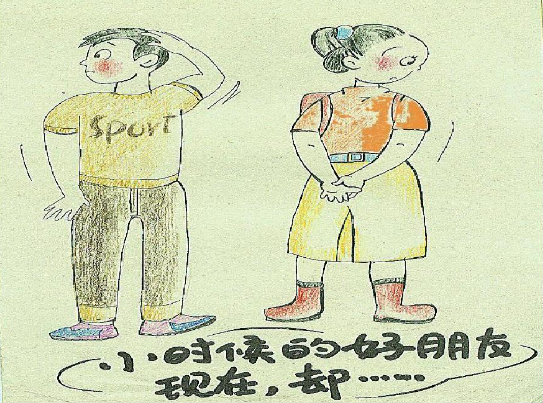 sport
小时候的好朋友
现在，却……